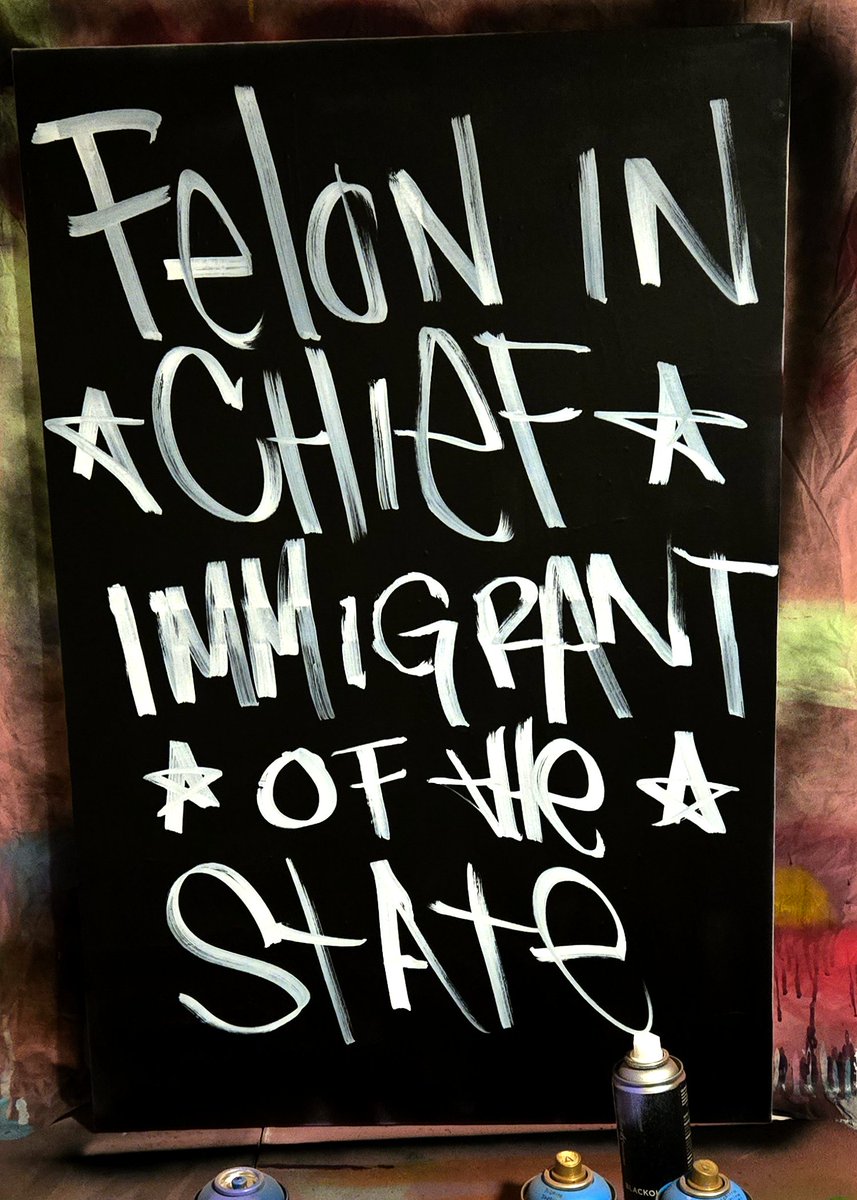 FeloN IN
CHIeF
IMMIGRANT
OF tHe
StAte
BLACKOU